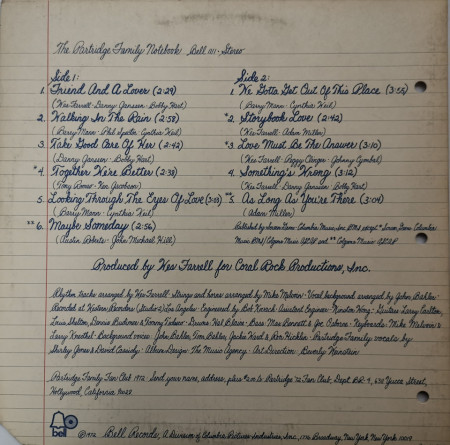 The Partridge Family Notebook Bell 1111 - Stereo
Side 1:
1. Friend And A Lover (2:29)
(Wes Farrell - Danny Janssen - Bobby Hart)
2. Walking In The Rain (2:58)
(Barry Mann - Phil Spector - Cynthia Weil)
3. Take Good Care Of Her (2:42)
(Danny Janssen - Bobby Hart)
*4. Together We're Better (2:38)
(Tony Romeo - Ken Jacobson)
5. Looking Through The Eyes Of Love (3:03)
(Barry Mann - Cynthia Weil)
**6. Maybe Someday (2:56)
(Austin Roberts - John Michael Hill)
Side 2:
1. We Gotta Get Out Of This Place (3:55)
(Barry Mann - Cynthia Weil)
*2. Storybook Love (2:42)
(Wes Farrell - Adam Miller)
*3. Love Must Be The Answer (3:10)
(Wes Farrell - Peggy Clinger - Johnny Cymbal)
4. Something's Wrong (3:12)
(Wes Farrell - Danny Janssen - Bobby Hart)
**5. As Long As You're There (3:04)
(Adam Miller)
Published by Screen Gems-Columbia Music, Inc. BMI except * Screen Gems-Columbia
Music BMI/Colgems Music ASCAP and ** Colgems Music - ASCAP
Produced by Wes Farrell for Coral Rock Productions, Inc.
Rhythm tracks arranged by Wes Farrell - Strings and horns arranged by Mike Melvoin - Vocal background arranged by John Bahler
Recorded at Western Recorders (Studio 2) Los Angeles - Engineered by Bob Kovach - Assistant Engineer - Winston Wong - Guitars: Larry Carlton,
Louis Shelton, Dennis Budimir & Tommy Tedesco - Drums: Hal Blaine - Bass: Max Bennett & Joe Osborn - Keyboards: Mike Melvoin &
Larry Knechtel - Background voices: John Bahler, Tom Bahler, Jackie Ward & Ron Hicklin - Partridge Family vocals by
Shirley Jones & David Cassidy - Album Design: The Music Agency - Art Direction: Beverly Weinstein
Partridge Family Fan Club 1972. Send your name, address, plus to Partridge '72 Fan Club, Dept. 638 Yucca Street,
Hollywood, California 90028
bell
©1972 Bell Records, A Division of Columbia Pictures Industries, Inc., 1776 Broadway, New York, New York 10019